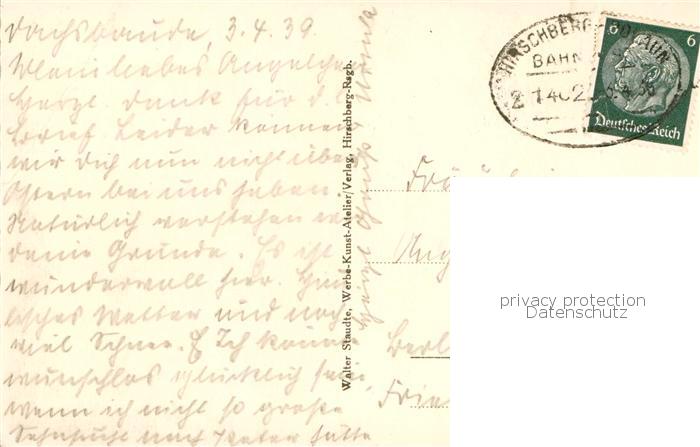 Dachsbaude, 3.4.39.
Mein liebes Angelchen
Herzl. Dank für d.
Brief. Leider können
wir Dich nun nicht über
Ostern bei uns haben.
Natürlich verstehen wir
deine Gründe. Es ist
wundervoll hier. Herr-
lisches Wetter und noch
viel Schnee. Ich könnte
wunschlos glücklich sein,
wenn ich nicht so große
Sehnsucht nach Peter hätte
Herzl. Grüße Ursula
Walter Staudte, Werbe-Kunst-Atelier/Verlag, Hirschberg-Rsgb.
HIRSCHBERG
BAHN
6 6
Deutsches Reich
Berl
Frie
privacy protection
Datenschutz